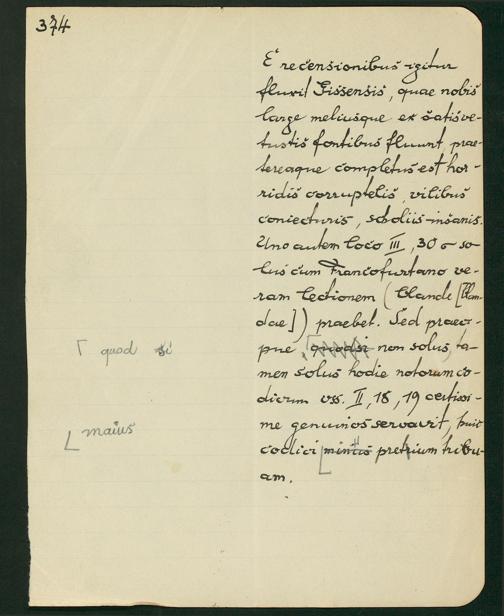 374
E recensionibus igitur
fluxit Gissensis, quae nobis
large meliusque ex satis ve-
tustis fontibus fluunt prae-
tereaque completus est hor-
ridis corruptelis, vilibus
coniecturis, scholiis insanis.
Uno autem loco III, 30 σ so-
lus cum Francofurtano ve-
ram lectionem (blande [blan-
dae]) praebet. Sed praeci-
pue, quodsi non solus, ta-
⌈ quod si
men solus hodie notorum co-
dicum vss. II, 18, 19 certissi-
me genuinos servavit, huic
⌊ maius
codici ⌊ minus pretrium tribu-
am.